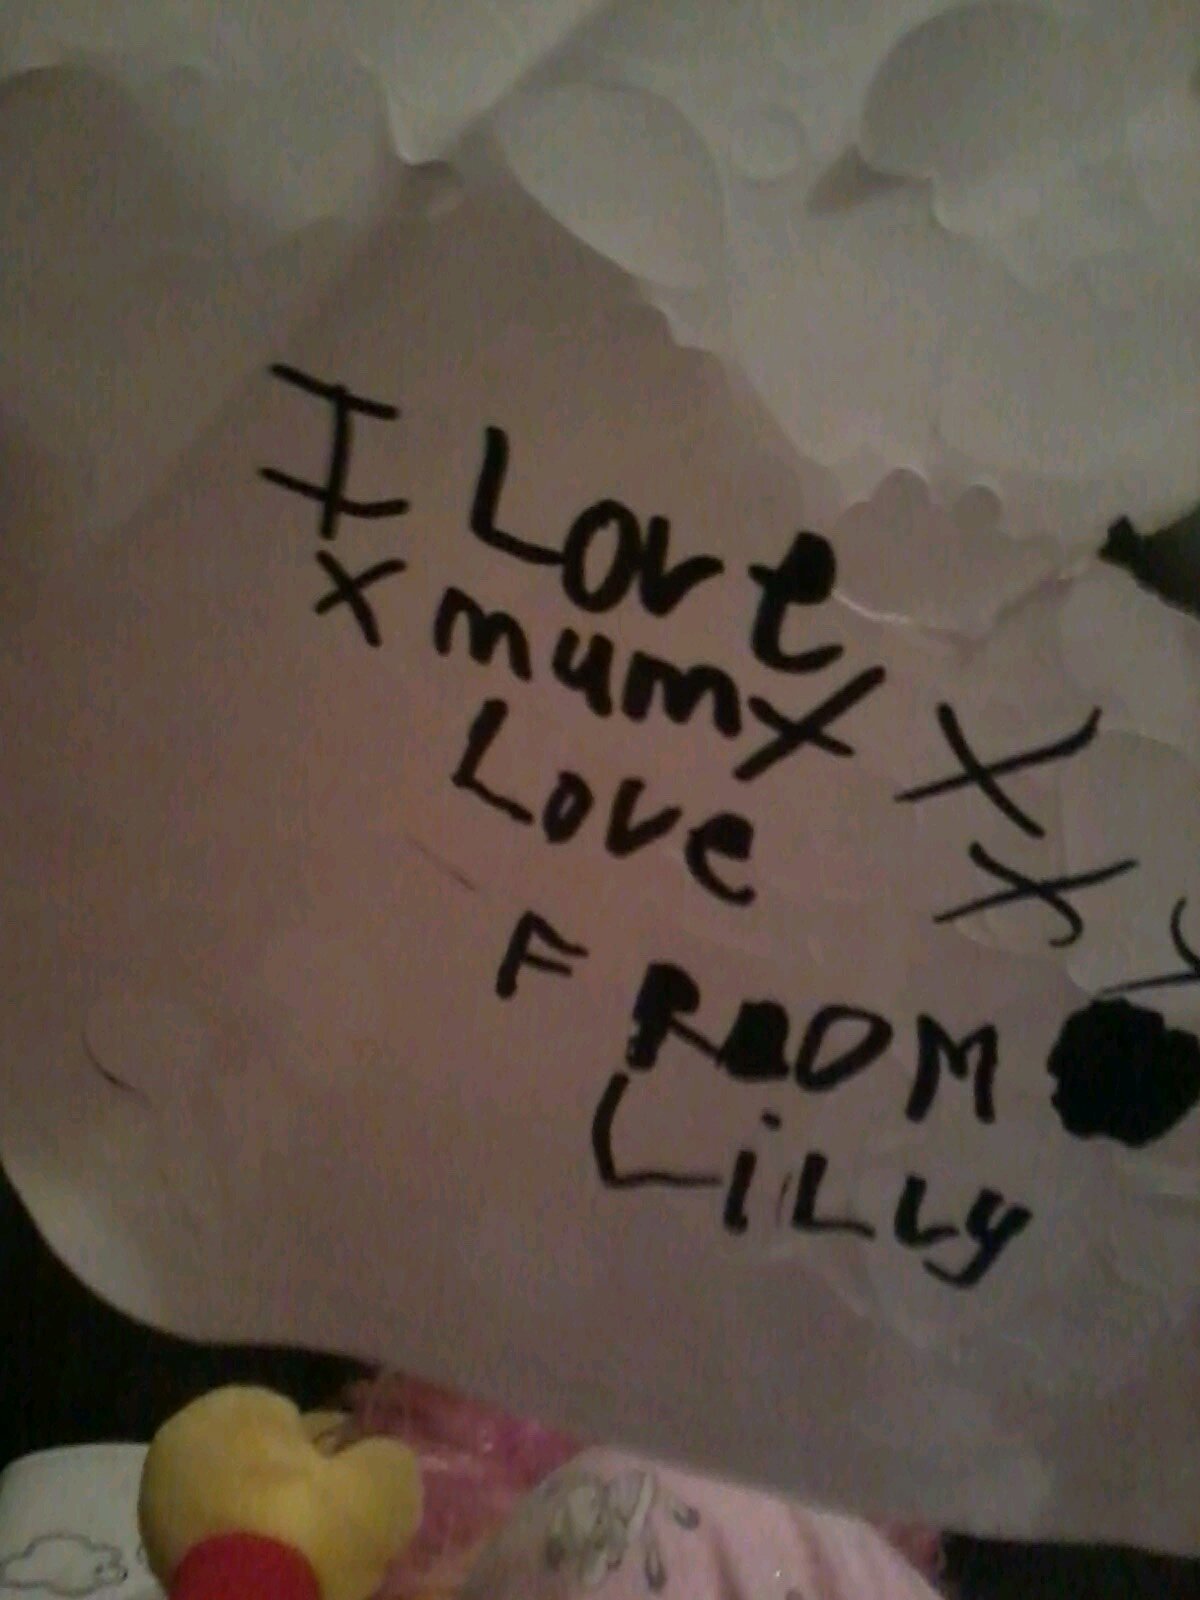 I Love
x mum x x
Love x
FROM
LiLLy